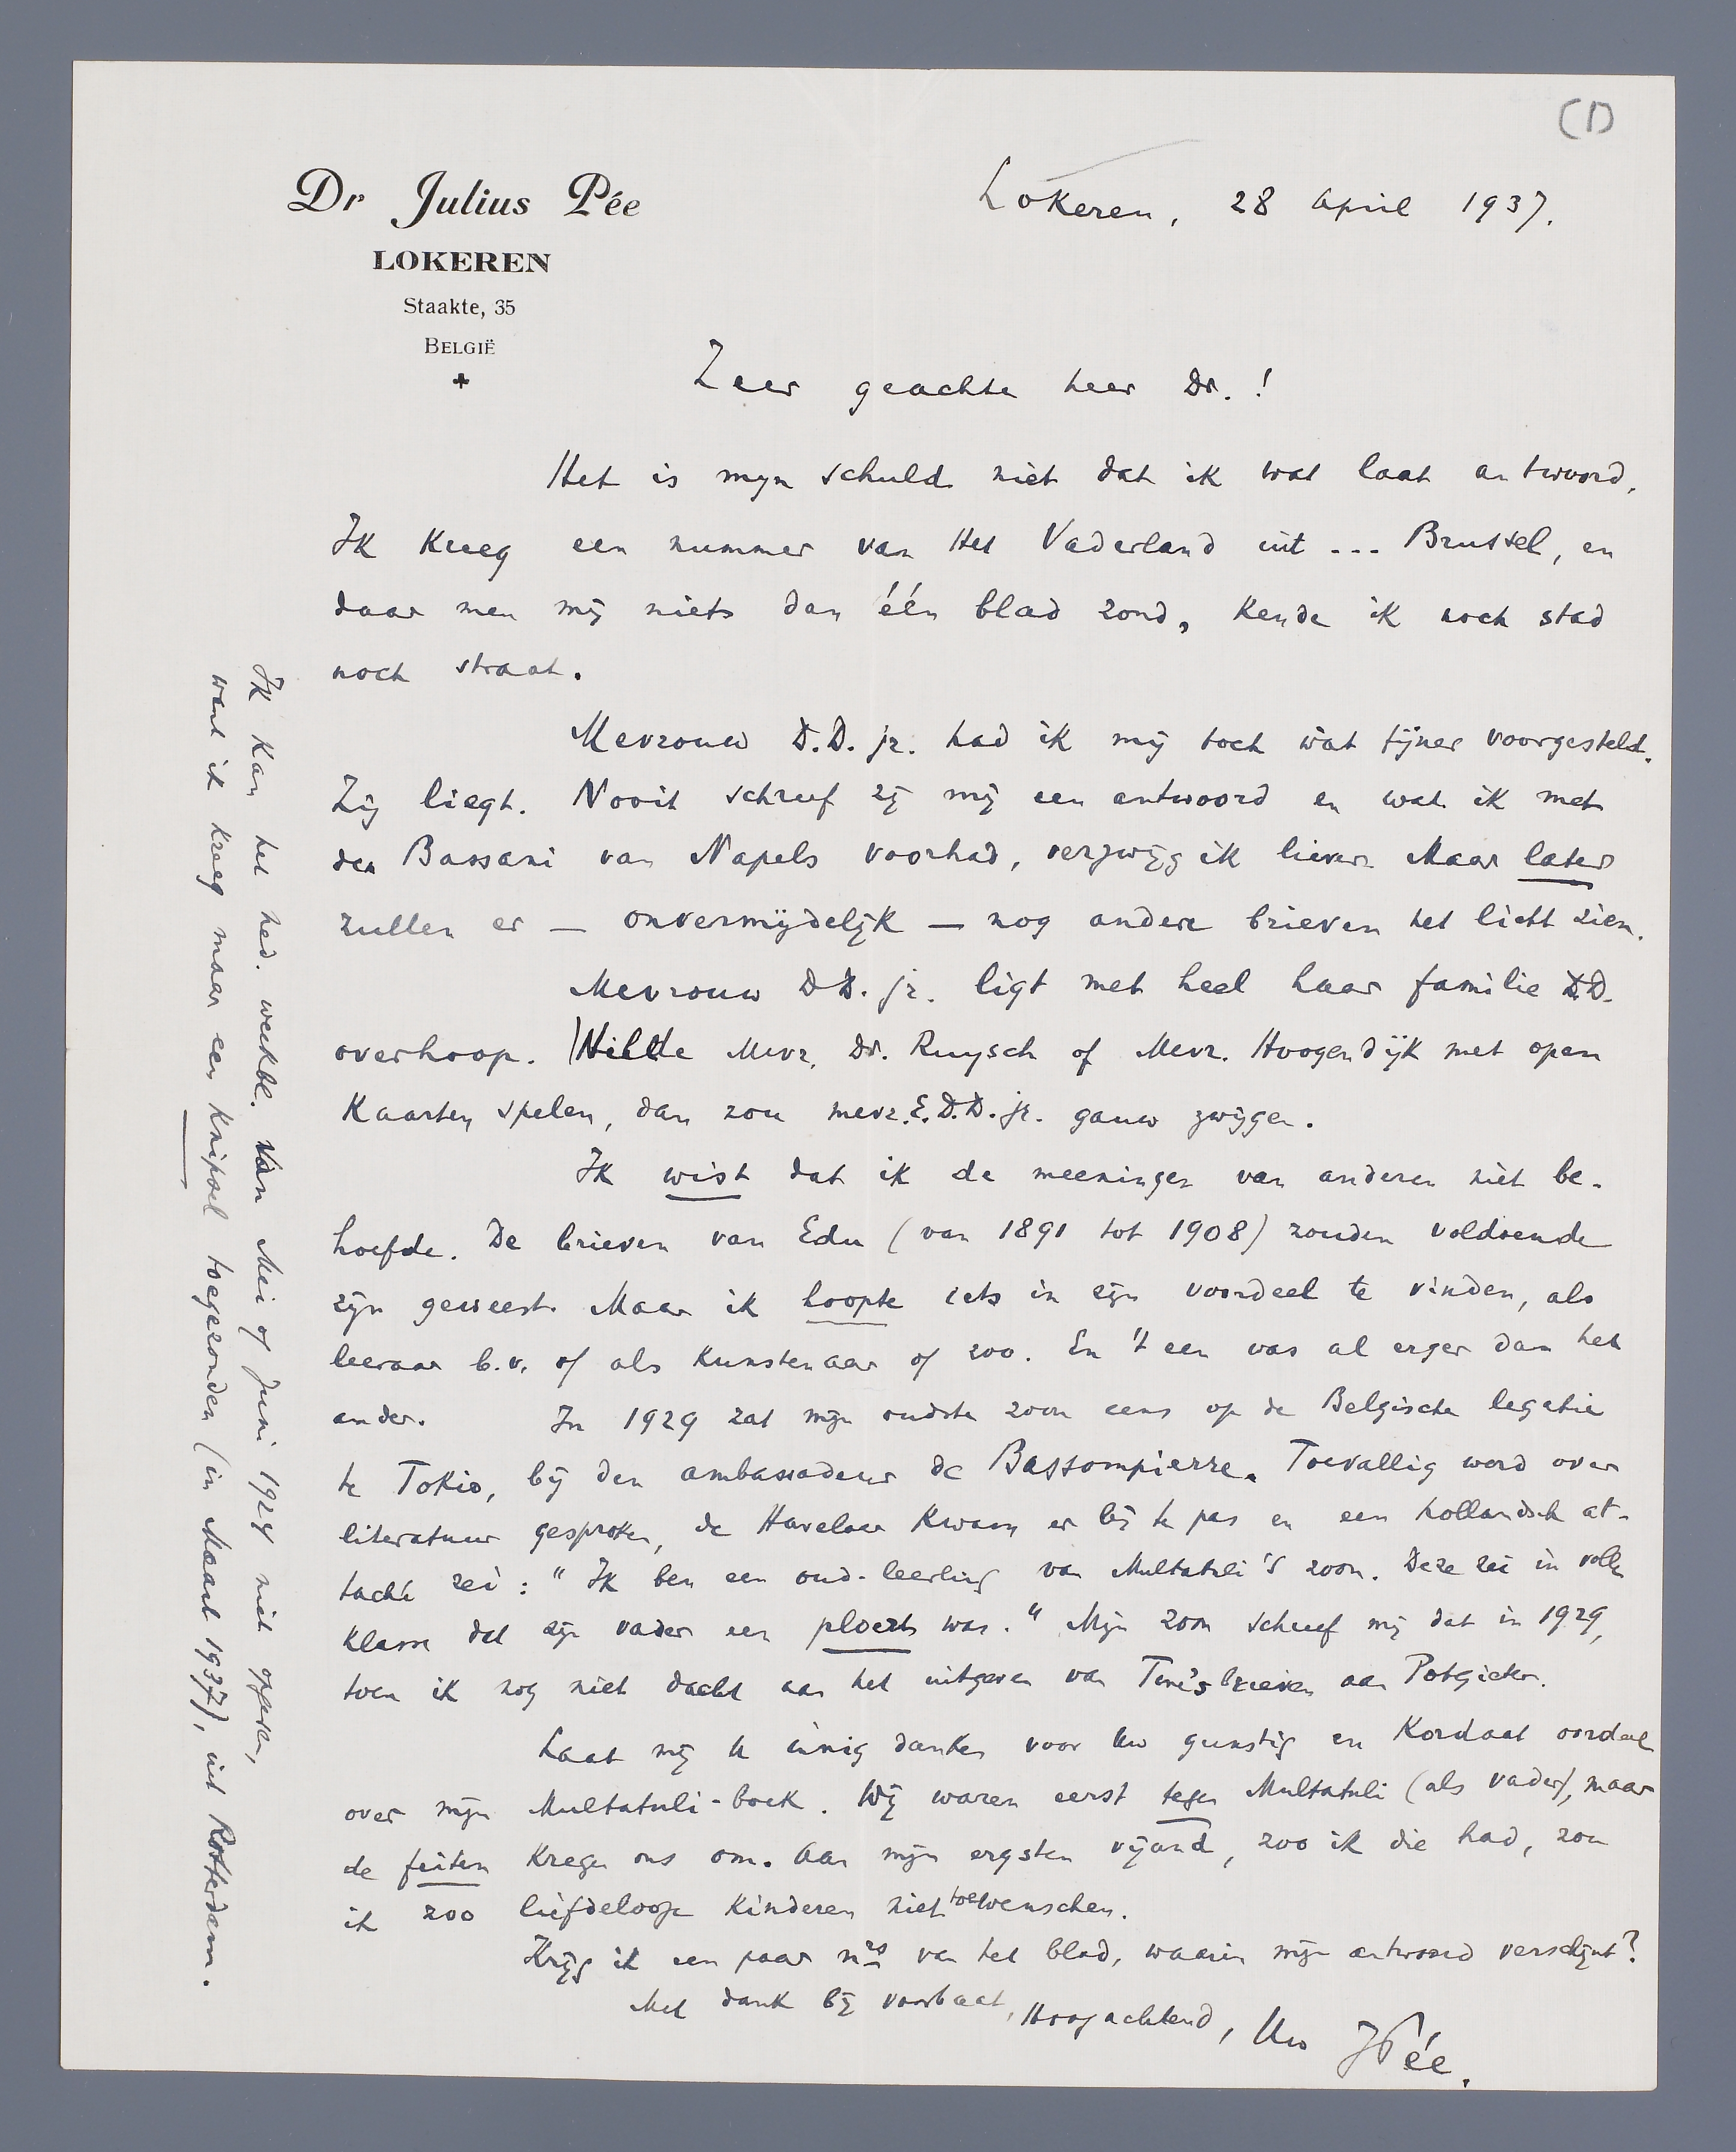 (1)
Dr Julius Pée
LOKEREN
Staakte, 35
BELGIË
Lokeren, 28 April 1937.
Zeer geachte heer Dr.!
Het is mijn schuld niet dat ik wat laat antwoord.
Ik kreeg een nummer van Het Vaderland uit ... Brussel, en
daar men mij niets dan één blad zond, kende ik noch stad
noch straat.
Mevrouw D.D. jr. had ik mij toch wat fijner voorgesteld.
Zij liegt. Nooit schreef zij mij een antwoord en wat ik met
den Bassani van Napels voorhad, verzwijg ik liever. Maar later
zullen er — onvermijdelijk — nog andere brieven het licht zien.
Mevrouw DD. jr. ligt met heel haar familie D.D.
overhoop. Wilde Mevr. Dr. Ruysch of Mevr. Hoogendijk met open
kaarten spelen, dan zou mevr. E.D.D. jr. gauw zwijgen.
Ik wist dat ik de meeningen van anderen niet be-
hoefde. De brieven van Edu (van 1891 tot 1908) zouden voldoende
zijn geweest. Maar ik hoopte iets in zijn voordeel te vinden, als
leeraar b.v. of als kunstenaar of zoo. En 't een was al erger dan het
ander. In 1929 zat mijn oudste zoon eens op de Belgische legatie
te Tokio, bij den ambassadeur de Bassompierre. Toevallig werd over
literatuur gesproken, de Havelaar kwam er bij te pas en een hollandsch at-
taché zei: "Ik ben een oud-leerling van Multatuli's zoon. Deze zei in volle
klasse dat zijn vader een ploert was." Mijn zoon schreef mij dat in 1929,
toen ik nog niet dacht aan het uitgeven van Tine's brieven aan Potgieter.
Laat mij U innig danken voor Uw gunstig en kordaat oordeel
over mijn Multatuli-boek. Wij waren eerst tegen Multatuli (als vader), maar
de feiten kregen ons om. Aan mijn ergsten vijand, zoo ik die had, zou
ik zoo liefdelooze kinderen niet toewenschen.
Krijg ik een paar nrs van het blad, waarin mijn antwoord verschijnt?
Met dank bij voorbaat, Hoogachtend, Uw JPée.
Ik kan het ned. weekbl. van Mei of Juni 1924 niet opgeven,
want ik kreeg maar een knipsel toegezonden (in Maart 1937), uit Rotterdam.